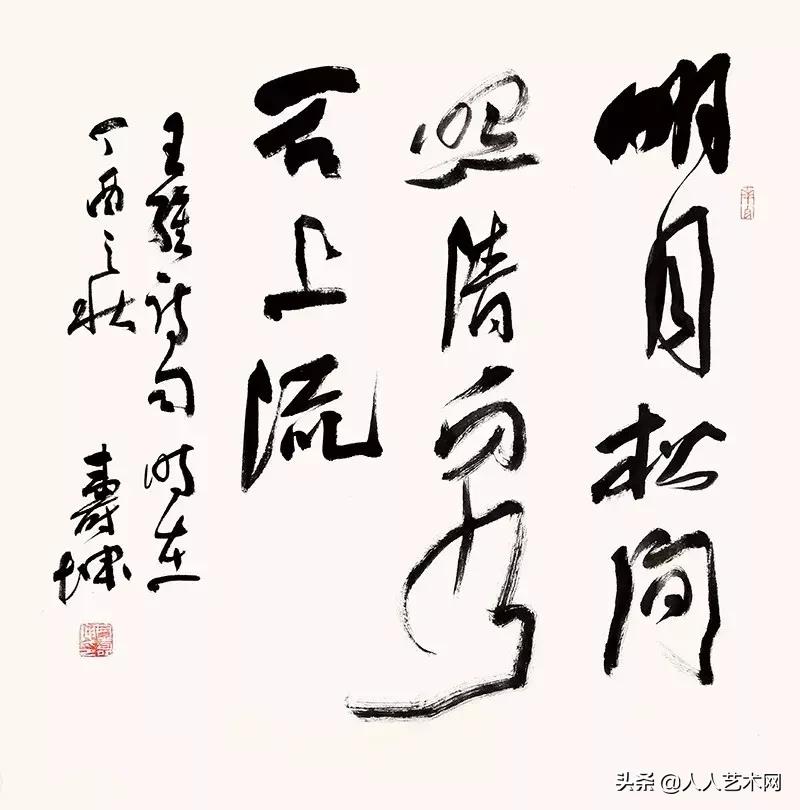 明月松间
照清泉
石上流
王維詩句時在
丁酉之秋 壽坤
头条 @人人艺术网